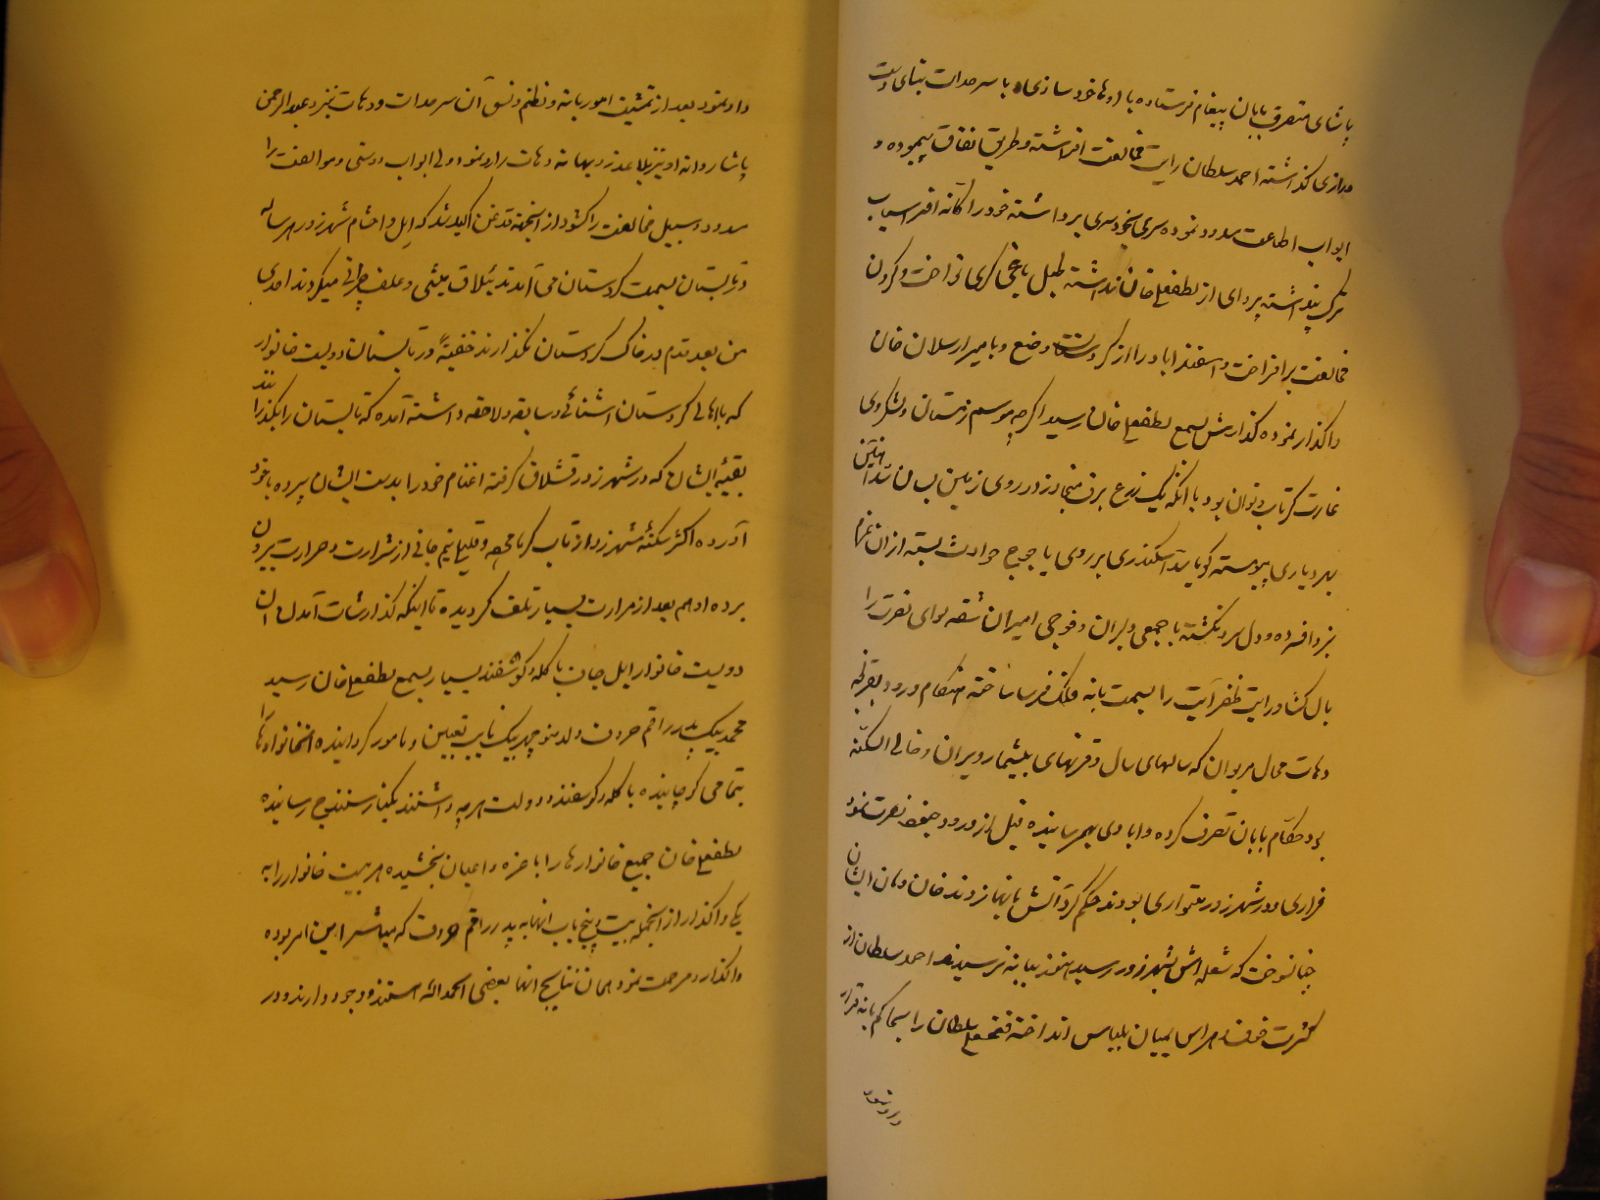 پاشای متصرف بابان پیغام فرستاده با اوها خود سازی با سرحدات بنای دست
درازی گذاشته احمد سلطان رایت مخالفت افراشته و طریق نفاق پیموده و
ابواب اطاعت مسدود نموده سری بخودسری برداشته خود را کانه افراسیاب
ترک پنداشته پروای از لطفعلی خان نداشته طبل یاغی گری نواخت و گردن
مخالفت برافراخت و اسفندآباد را از کردستان وضع و بامیر ارسلان خان
واگذار نموده گذارش بسمع لطفعلی خان رسید اگرچه موسم زمستان و لشکر وی
غارت گر تاب و توان بود با آنکه یک ذرع برف متجاوز در روی زمین بسان سد آهنین
بهر دیاری پیوسته گویا سد اسکندری بر روی یاجوج حوادث بسته از ان عزم
نیز افسرده و دل سرد نگشته با جمعی دلیران و فوجی امیران شقه لوای نصرت را
بال گشا و رایت ظفر آیت را بسمت بانه فلک فرسا ساخته هنگام ورود بقزلجه
دهات محال مریوان که سالهای سال و قرنهای بیشمار ویران و خالی السکنه
بود حکام بابان تصرف کرده و ابادی بهم رسانیده قبل از ورود نصرت نمود
فراری و در شهرزور متواری بودند حکم کرد آتش بانها زدند خان و مان ایشان
چنان سوخت که شعله اش بشهرزور رسید هنوز ببانه نرسیده احمد سلطان از
کثرت خوف و هراس بمیان بلباس انداخته فتحعلی سلطان را بحاکم بانه قرار
داد و نمود بعد از تمشیت امور بانه و نظم و نسق آن سرحدات و دهات نیز و عبدالرحمن
پاشا روانه او نیز بلا عذر و بهانه دهات را رد نمود ولی ابواب دوستی و موالفت را
مسدود و سبیل مخالفت را گشود از اینجهة قدغن اکید شد که ایل و احشام شهرزور هر ساله
در تابستان بسمت کردستان می آمدند ییلاق میشی و علف چرانی میکردند احدی
من بعد قدم در خاک کردستان نگذارند خفیة در تابستان دویست خانوار
که با اهالی کردستان اشنائی و سابقه ولاحقه داشته آمده که تابستان را بگذرانند
بقیه ایشان که در شهرزور قشلاق گرفته اغنام خود را بدست ایشان سپرده باخود
آورده اکثر سکنه شهرزور از تاب گرما محصه و قلیل نیم جانی از شرارت و حرارت بیرون
برده او هم بعد از مرارت بسیار تلف گردیده تا اینکه گذارشات آمدن ان
دویست خانوار ایل جاف با گله و گوسفند بسیار بسمع لطفعلی خان رسید
محمد بیک پدر راقم حروف ولد منوچهر بیک نایب تعیین و مامور گردانیده انخانوارها را
بتمامی کوچانیده با گله و گوسفند و دولت هرچه داشتند بکنار سنندج رسانیده
لطفعلی خان جمیع خانوارها را با عزه و اعیان بخشیده هر بیت خانوار را به
یکی واگذار از انجمله بیست و پنج باب انها به پدر راقم حروف که مباشر این امر بوده
واگذار و مرحمت نمود همان نتایج انها بعضی الحمدالله هستند و وجود دارند و در